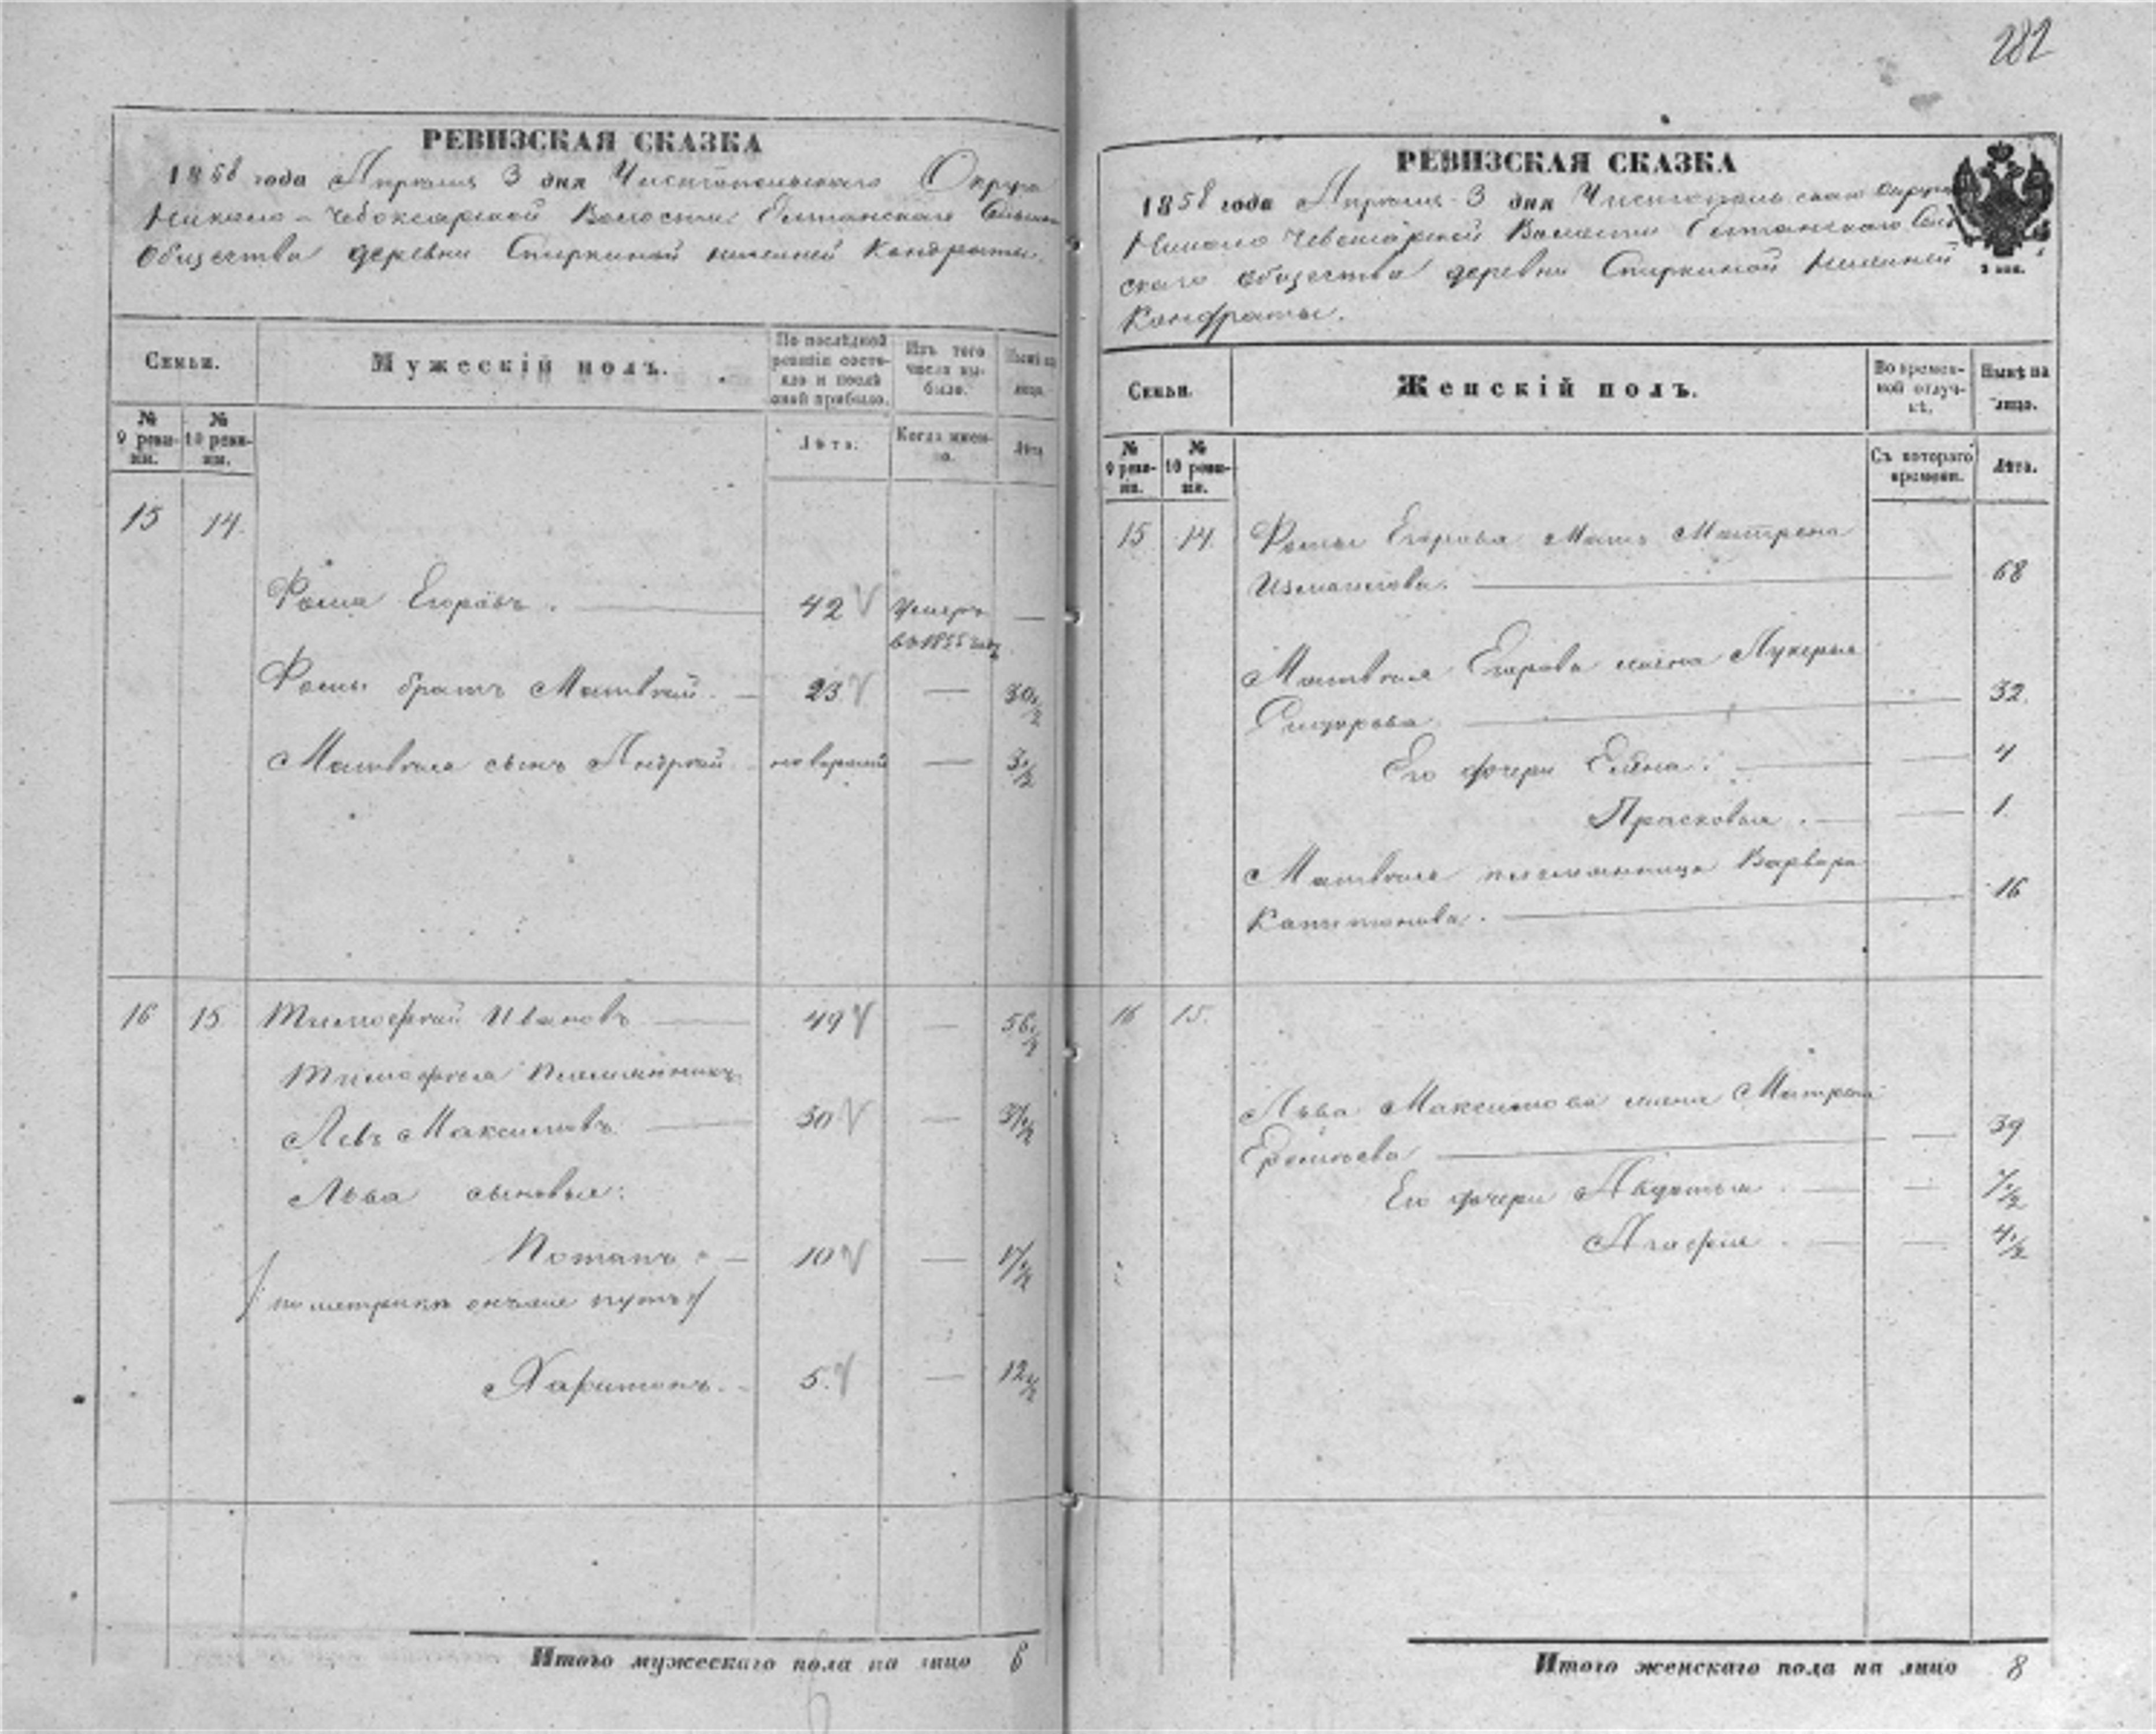 282
РЕВИЗСКАЯ СКАЗКА
1858 года Апреля 3 дня Чистопольскаго Округа
Николо-Чебоксарской Волости Сельскаго
Общества деревни Спиркиной Кондраты.
Семьи.
Мужескій полъ.
По послѣдней ревизіи состояло и послѣ оной прибыло.
Изъ того числа выбыло.
Нынѣ на лицо.
№ 9 ревизіи.
№ 10 ревизіи.
Лѣта.
Когда именно.
Лѣта
15 14.
Фома Егоровъ. 42 Умеръ —
въ 1855 году
Фомы братъ Матвѣй. 23 — 30 1/2
Матвѣя сынъ Андрей — 3 1/2
16 15 Тимофѣй Ивановъ 49 — 56 1/2
Тимофѣя племянникъ
Левъ Максимовъ 30 — 37 1/2
Льва сыновья:
Потапъ 10 — 17 1/2
/по метрикѣ /
Харитонъ. 5. — 12 1/2
Итого мужескаго пола на лицо 6
РЕВИЗСКАЯ СКАЗКА
1858 года Апреля 3 дня Чистопольскаго округа
Николо Волости Сель
скаго общества деревни Спиркиной
Кондраты.
Семьи.
Женскій полъ.
Во временной отлучкѣ.
Нынѣ на лицо.
№ 9 ревизіи.
№ 10 ревизіи.
Съ котораго времени.
Лѣта.
15 14. Фомы Егорова Мать Матрена
Измаилова. 68
Матвѣя Егорова жена Лукерья
Сидорова 32.
Его дочери Елена: — 4
Прасковья. — 1.
Матвѣя племянница Варвара
Капитонова. 16
16 15.
Льва Максимова жена Матрена
39
Его дочери Авдотья — 7 1/2
Агафия — 4 1/2
Итого женскаго пола на лицо 8